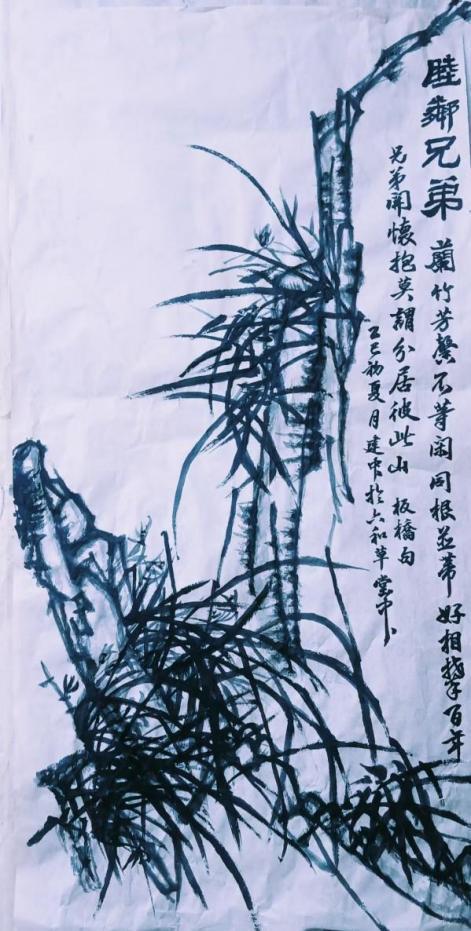 睦鄰兄弟 蘭竹芳馨不等閑同根並蒂好相攀百年
兄弟開懷抱莫謂分居彼此山 板橋句
乙巳初夏月建中於六和草堂中